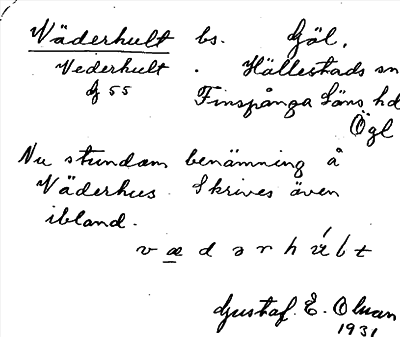 Väderhult bs. Göl.
Vederhult . Hällestads sn
G 55 Finspånga Läns hd
Ögl
Nu stundom benämning å
Väderhus. Skrives även
ibland.
v æ d ə r h ú l t
Gustaf. E. Olsson
1931